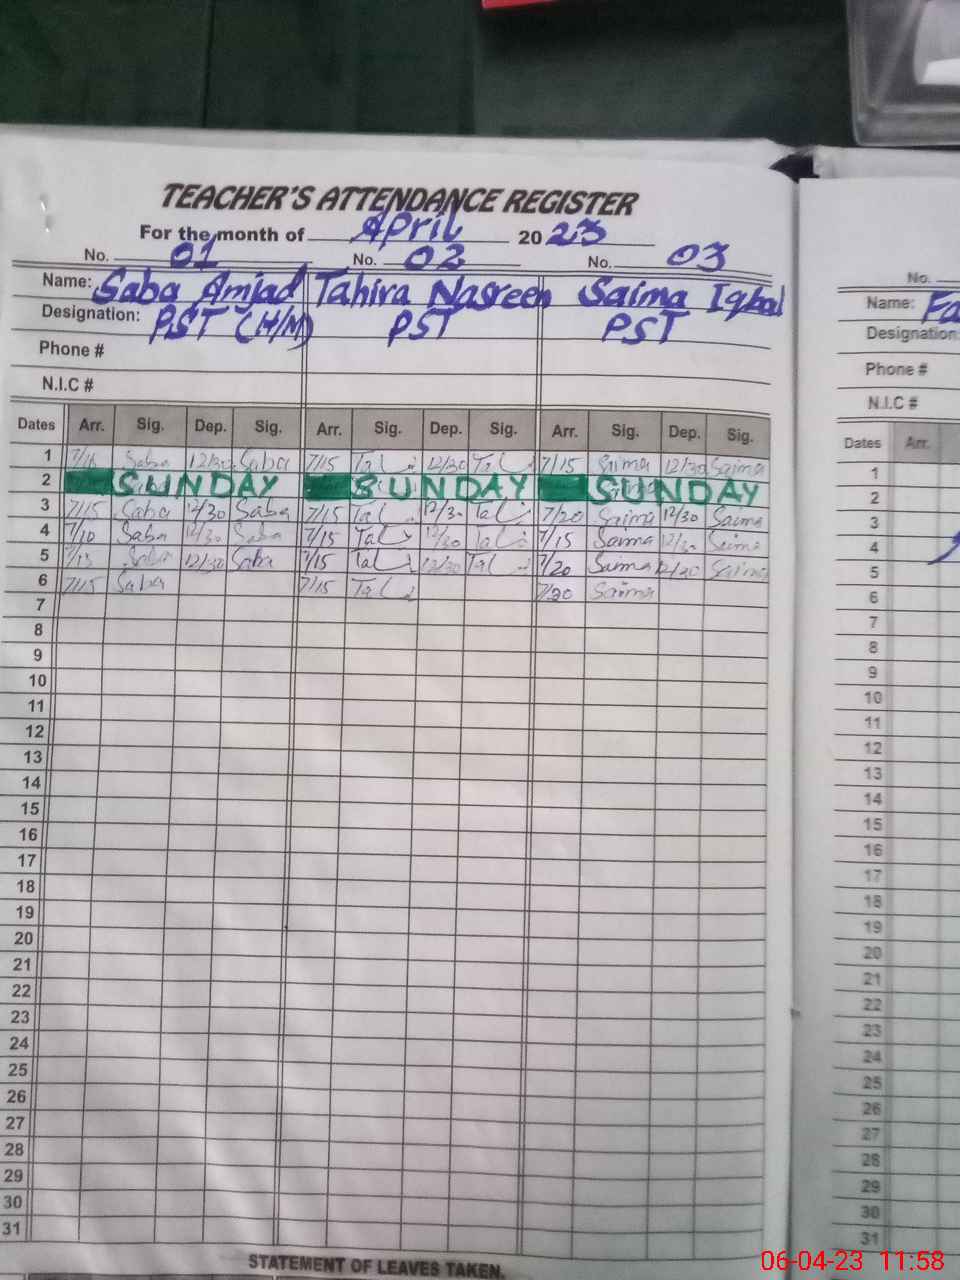 TEACHER'S ATTENDANCE REGISTER
For the month of April 2023
No. 01 No. 02 No. 03
Name: Saba Amjad Tahira Nasreen Saima Iqbal
Designation: PST (H/M) PST PST
Phone #
N.I.C #
Dates Arr. Sig. Dep. Sig. Arr. Sig. Dep. Sig. Arr. Sig. Dep. Sig.
1 Saba 12/30 Saba 7/15 12/30 7/15 Saima 12/30 Saima
2 SUNDAY SUNDAY SUNDAY
3 7/15 Saba 12/30 Saba 7/15 12/30 7/20 Saima 12/30 Saima
4 7/10 Saba 12/30 Saba 7/15 12/30 7/15 Saima 12/30 Saima
5 Saba 12/30 Saba 7/15 12/30 7/20 Saima 12/30 Saima
6 7/15 Saba 7/15 7/20 Saima
7
8
9
10
11
12
13
14
15
16
17
18
19
20
21
22
23
24
25
26
27
28
29
30
31
STATEMENT OF LEAVES TAKEN.
No.
Name: Fa
Designation:
Phone #
N.I.C #
Dates Arr.
1
2
3
4
5
6
7
8
9
10
11
12
13
14
15
16
17
18
19
20
21
22
23
24
25
26
27
28
29
30
31
06-04-23 11:58